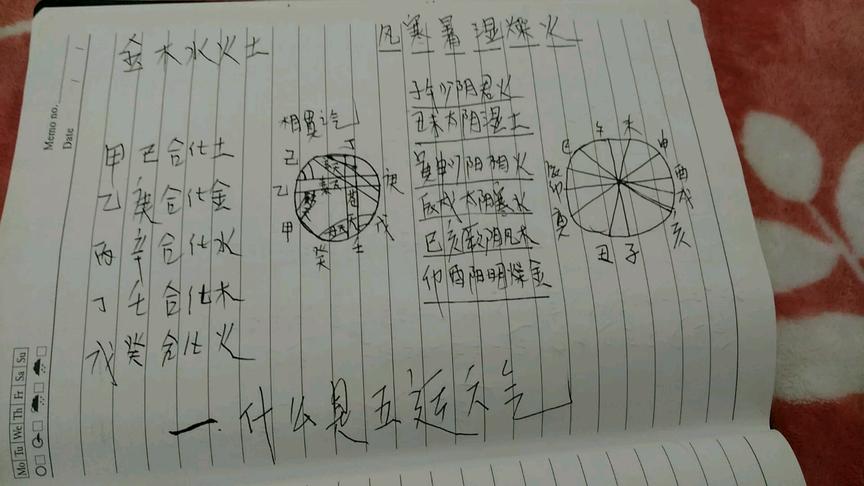 金木水火土
风寒暑湿燥火
甲己合化土
乙庚合化金
丙辛合化水
丁壬合化木
戊癸合化火
丁
己
乙
甲
癸
壬
戊
庚
子午少阴君火
丑未太阴湿土
寅申少阳相火
辰戌太阳寒水
巳亥厥阴风木
卯酉阳明燥金
午
未
申
酉
戌
亥
子
丑
寅
卯
辰
巳
一.什么是五运六气
Memo no.
Date
Mo Tu We Th Fr Sa Su